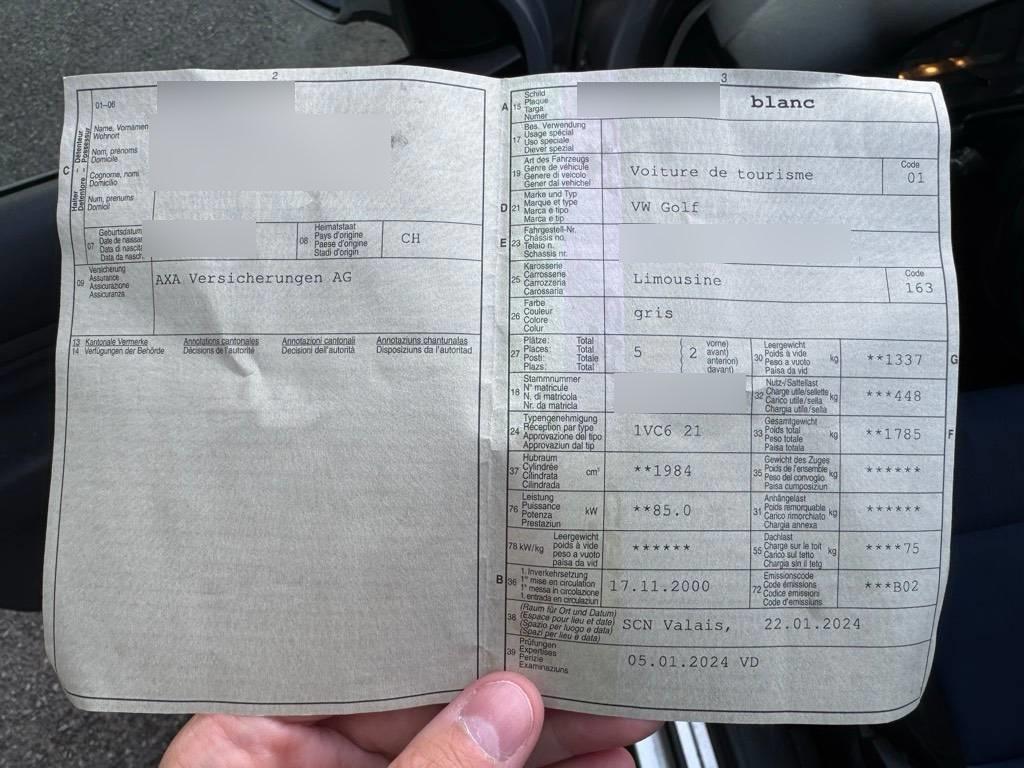 2
01–06
Name, Vornamen
Wohnort
Nom, prénoms
Domicile
Cognome, nomi
Domicilio
Num, prenums
Domicil
C
Halter Détenteur
Detentore Possessur
07
Geburtsdatum
Date de naissa
Data di nascita
Data da nasch.
08
Heimatstaat
Pays d'origine
Paese d'origine
Stadi d'origin
CH
09
Versicherung
Assurance
Assicurazione
Assicuranza
AXA Versicherungen AG
13 Kantonale Vermerke Annotations cantonales Annotazioni cantonali Annotaziuns chantunalas
14 Verfügungen der Behörde Décisions de l'autorité Decisioni dell'autorità Disposiziuns da l'autoritad
3
A 15
Schild
Plaque
Targa
Numer
blanc
17
Bes. Verwendung
Usage spécial
Uso speciale
Diever spezial
19
Art des Fahrzeugs
Genre de véhicule
Genere di veicolo
Gener dal vehichel
Voiture de tourisme
Code
01
D 21
Marke und Typ
Marque et type
Marca e tipo
Marca e tip
VW Golf
E 23
Fahrgestell-Nr.
Châssis no.
Telaio n.
Schassis nr.
25
Karosserie
Carrosserie
Carrozzeria
Carossaria
Limousine
Code
163
26
Farbe
Couleur
Colore
Colur
gris
27
Plätze: Total
Places: Total
Posti: Totale
Plazs: Total
5
2
vorne)
avant)
anteriori)
davant)
30
Leergewicht
Poids à vide
Peso a vuoto
Paisa da vid
kg
**1337
G
18
Stammnummer
N° matricule
N. di matricola
Nr. da matricla
32
Nutz-/Sattellast
Charge utile/sellette
Carico utile/sella
Chargia utile/sella
kg
***448
24
Typengenehmigung
Réception par type
Approvazione del tipo
Approvaziun dal tip
1VC6 21
33
Gesamtgewicht
Poids total
Peso totale
Paisa totala
kg
**1785
F
37
Hubraum
Cylindrée
Cilindrata
Cilindrada
cm³
**1984
35
Gewicht des Zuges
Poids de l'ensemble
Peso del convoglio
Paisa cumposiziun
kg
******
76
Leistung
Puissance
Potenza
Prestaziun
kW
**85.0
31
Anhängelast
Poids remorquable
Carico rimorchiato
Chargia annexa
kg
******
78 kW/kg
Leergewicht
poids à vide
peso a vuoto
paisa da vid
******
55
Dachlast
Charge sur le toit
Carico sul tetto
Chargia sin il tetg
kg
****75
B 36
1. Inverkehrsetzung
1re mise en circulation
1a messa in circolazione
1. entrada en circulaziun
17.11.2000
72
Emissionscode
Code émissions
Codice emissioni
Code d'emissiuns
***B02
38
(Raum für Ort und Datum)
(Espace pour lieu et date)
(Spazio per luogo e data)
(Spazi per lieu e data)
SCN Valais, 22.01.2024
39
Prüfungen
Expertises
Perizie
Examinaziuns
05.01.2024 VD